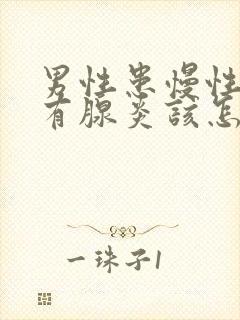 男性患慢性
有腺炎該怎
一珠子1